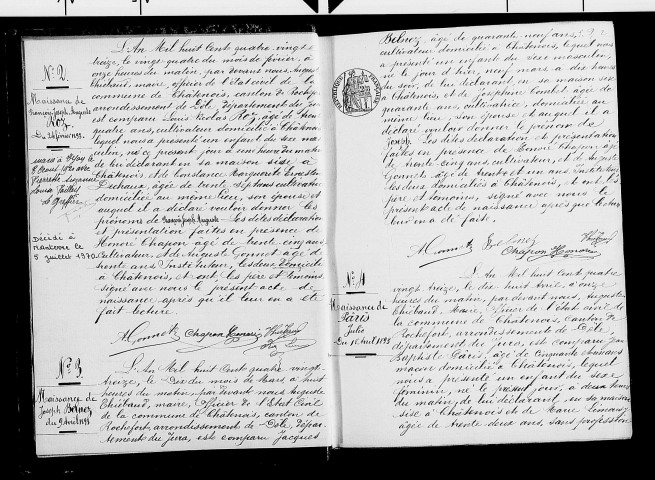 N° 2.
Naissance de
François Joseph Auguste
Roz
Du 24 février 1893.
Marié à
le
avec
Pierrette
Louise
Le Greffier
Décédé à
Nanterre le
5 juillet 1970
L'An Mil huit Cent quatre vingt
treize, le vingt quatre du mois de février, à
onze heures du matin, par devant nous, Auguste
Thiébaut, maire, officier de l'état civil de la
commune de Châtenois, canton de Rochefort
arrondissement de Dôle, Département du Jura,
est comparu Louis Nicolas Roz, âgé de trente
quatre ans, cultivateur domicilié à Châtenois
lequel nous a présenté un enfant du sexe mas
culin, né ce présent jour à heures du matin
de lui déclarant en sa maison sise à
Châtenois, et de Constance Marguerite Ernestine
Dechaux, âgée de trente sept ans cultivatrice
domiciliée au même lieu, son épouse et
auquel il a déclaré vouloir donner les
prénoms de François Joseph Auguste. Les dites déclaration
et présentation faites en présence de
Honoré Chapon âgé de trente cinq ans,
Cultivateur, et de Auguste Gonnet âgé de
trente ans Instituteur, les deux domiciliés
à Châtenois, et ont les père et témoins
signé avec nous le présent acte de
naissance après qu'il leur en a été
fait lecture.
A Gonnet Chapon Honoré Thiébaut
Roz L
N° 3.
Naissance de
Joseph Belnez
du 9 Avril 1893
L'An Mil huit Cent quatre vingt
treize, le Dix du mois de Mars à huit
heures du matin, par devant nous Auguste
Thiébaut, maire, Officier de l'Etat Civil
de la commune de Châtenois, canton de
Rochefort arrondissement de Dôle, Dépar
tement du Jura, est comparu Jacques
Belnez, âgé de quarante neuf ans,
cultivateur domicilié à Châtenois, lequel nous
a présenté un enfant du sexe masculin,
né le jour d'hier neuf mars à dix heures
du soir, de lui déclarant en sa maison sise
à Châtenois et de Joséphine Comte âgée de
quarante ans, cultivatrice, domiciliée au
même lieu, son épouse, et auquel il a
déclaré vouloir donner le prénom de
Joseph. Les dites déclaration et présentation
faites en présence de Honoré Chapon âgé
de trente cinq ans, cultivateur, et de Auguste
Gonnet âgé de trente et un ans, Instituteur
les deux domiciliés à Châtenois, et ont les
père et témoins, signé avec nous le
présent acte de naissance après que lecture
leur en a été fait.
A Gonnet Belnez Chapon Honoré
N° 4
Naissance de
Paris
Julie
Du 16 Avril 1893
L'An Mil huit Cent quatre
vingt treize, le dix huit Avril, à onze
heures du matin, par devant nous, Auguste
Thiébaut, Maire, Officier de l'état civil de
la commune de Châtenois, canton de
Rochefort arrondissement de Dôle,
département du Jura, est comparu Jean
Baptiste Paris, âgé de Cinquante ans
maçon domicilié à Châtenois, lequel
nous a présenté un enfant du sexe
féminin, né le présent jour, à deux heures
du matin, de lui déclarant, en sa maison
sise à Châtenois et de Marie
âgée de trente deux ans, sans profession